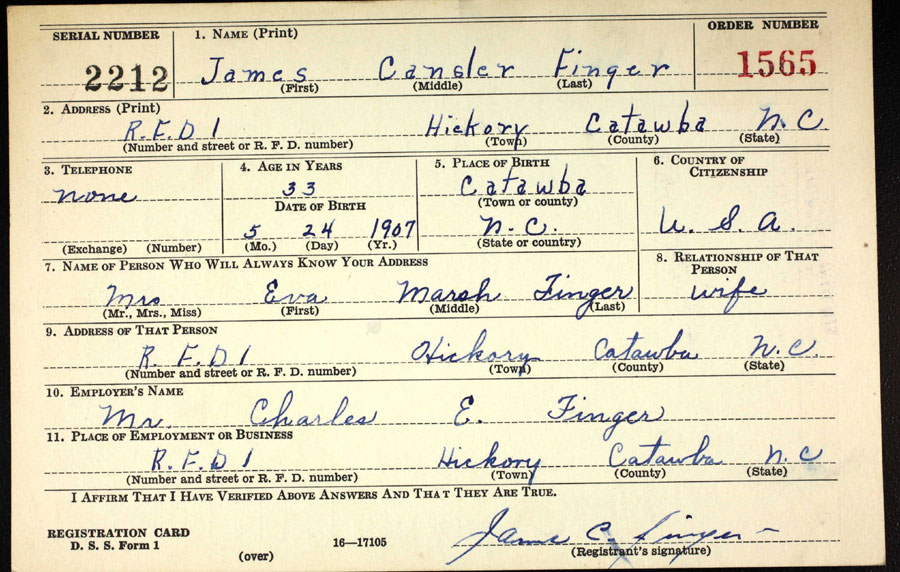 SERIAL NUMBER 1. NAME (Print) ORDER NUMBER
2212 James Cansler Finger 1565
(First) (Middle) (Last)
2. ADDRESS (Print)
R.F.D 1 Hickory Catawba N.C.
(Number and street or R. F. D. number) (Town) (County) (State)
3. TELEPHONE 4. AGE IN YEARS 5. PLACE OF BIRTH 6. COUNTRY OF CITIZENSHIP
none 33 Catawba
DATE OF BIRTH (Town or county)
5 24 1907 N.C. U.S.A.
(Exchange) (Number) (Mo.) (Day) (Yr.) (State or country)
7. NAME OF PERSON WHO WILL ALWAYS KNOW YOUR ADDRESS 8. RELATIONSHIP OF THAT PERSON
Mrs Eva Marsh Finger wife
(Mr., Mrs., Miss) (First) (Middle) (Last)
9. ADDRESS OF THAT PERSON
R.F.D 1 Hickory Catawba N.C.
(Number and street or R. F. D. number) (Town) (County) (State)
10. EMPLOYER'S NAME
Mr. Charles E. Finger
11. PLACE OF EMPLOYMENT OR BUSINESS
R.F.D 1 Hickory Catawba N.C
(Number and street or R. F. D. number) (Town) (County) (State)
I AFFIRM THAT I HAVE VERIFIED ABOVE ANSWERS AND THAT THEY ARE TRUE.
REGISTRATION CARD James C. Finger
D. S. S. Form 1 (over) 16—17105 (Registrant's signature)